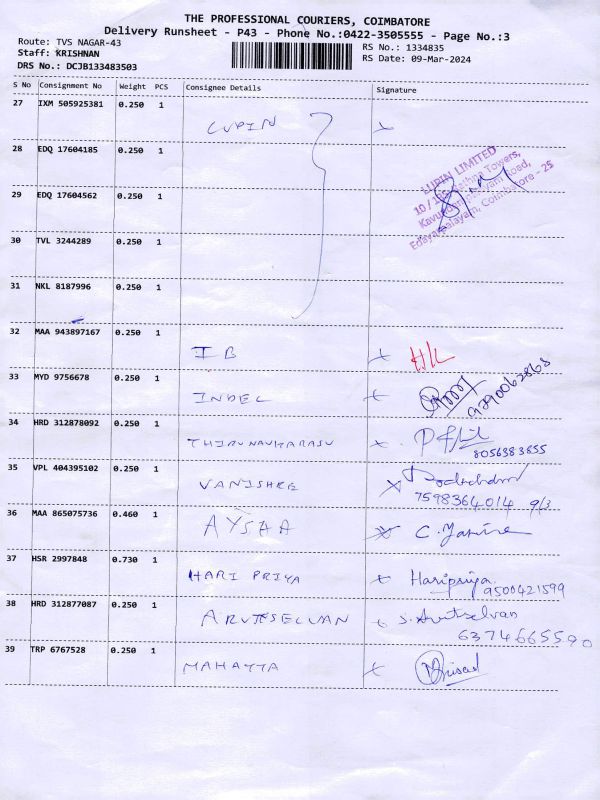 THE PROFESSIONAL COURIERS, COIMBATORE
Delivery Runsheet - P43 - Phone No.:0422-3505555 - Page No.:3
Route: TVS NAGAR-43
Staff: KRISHNAN
DRS No.: DCJB133483503
RS No.: 1334835
RS Date: 09-Mar-2024
S No Consignment No Weight PCS Consignee Details Signature
27 IXM 505925381 0.250 1 LUPIN
28 EDQ 17604185 0.250 1
LUPIN LIMITED
Towers,
Road,
Coimbatore - 25
29 EDQ 17604562 0.250 1
30 TVL 3244289 0.250 1
31 NKL 8187996 0.250 1
32 MAA 943897167 0.250 1 IB
33 MYD 9756678 0.250 1 INDEL
34 HRD 312878092 0.250 1 THIRUNAVKARASU
8056383855
35 VPL 404395102 0.250 1 VANISHRE
7598364014 9/3
36 MAA 865075736 0.460 1 AYSAA
37 HSR 2997848 0.730 1 HARI PRIYA Haripriya
9500421599
38 HRD 312877087 0.250 1 ARUTSELVAN S. Arutselvan
6374665590
39 TRP 6767528 0.250 1 MAHATTA